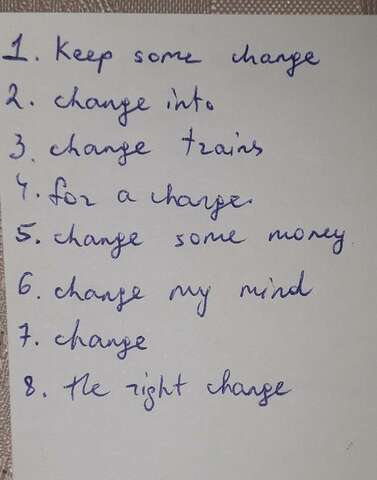 1. Keep some change
2. change into
3. change trains
4. for a change.
5. change some money.
6. change my mind
7. change
8. the right change